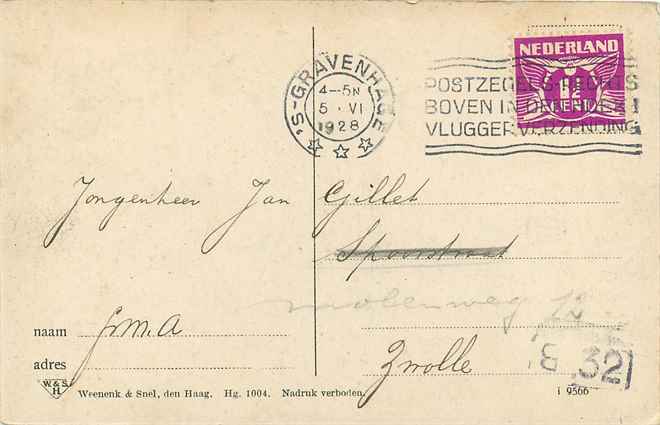 NEDERLAND
1½
CENT
'S-GRAVENHAGE
4-5N
5 · VI
1928
POSTZEGELS RECHTS
BOVEN IN DEN HOEK
VLUGGER VERZENDING
Jongenheer Jan Gillet
Spoorstraat
molenweg 12
naam
adres
Zwolle
32
W&S
H
Weenenk & Snel, den Haag. Hg. 1004. Nadruk verboden.
i 9566